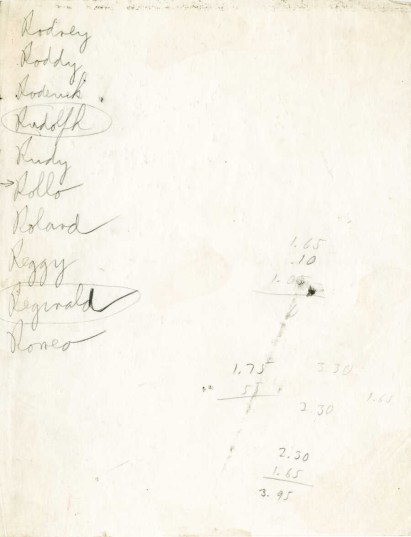 Rodney
Roddy
Roderick
Rudolph
Rudy
Rollo
Roland
Reggy
Reginald
Romeo
1.65
.10
1.75 3.30
55
3.30
2.30
1.65
3.95